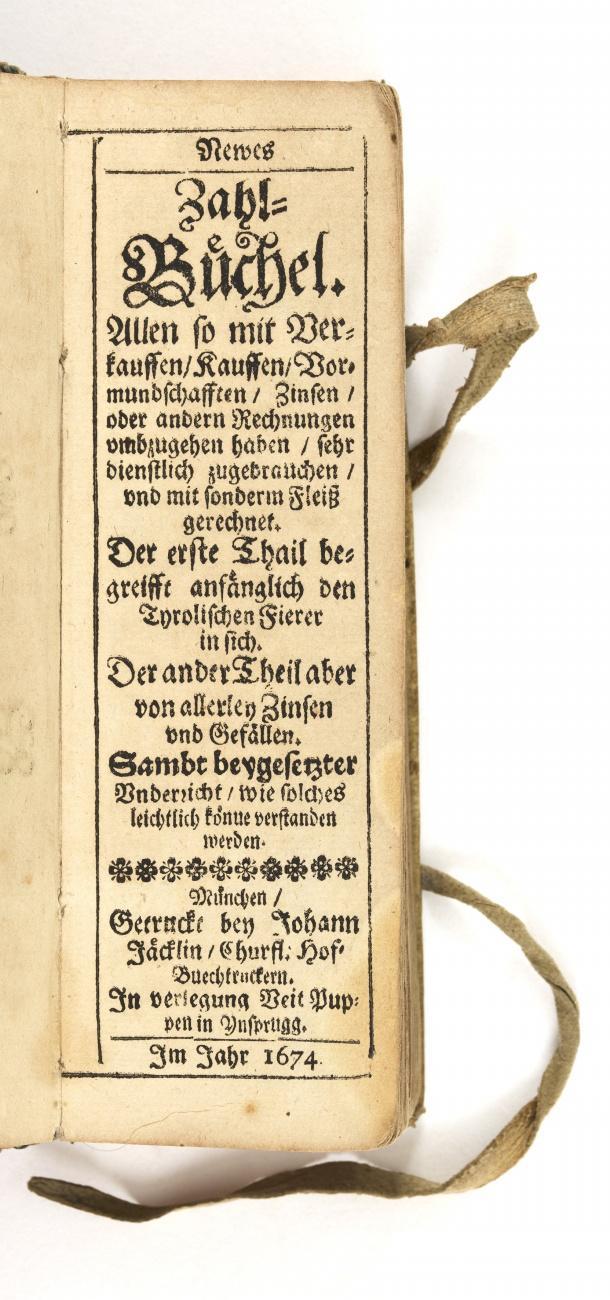 Newes
Zahl-
Bůchel.
Allen so mit Ver-
kauffen/Kauffen/Vor-
mundschafften / Zinsen /
oder andern Rechnungen
vmbzugehen haben / sehr
dienstlich zugebrauchen /
vnd mit sonderm Fleiß
gerechnet.
Der erste Thail be-
greifft anfänglich den
Tyrolischen Fierer
in sich.
Der ander Theil aber
von allerley Zinsen
vnd Gefällen.
Sambt beygesetzter
Vnderricht / wie solches
leichtlich könne verstanden
werden.
München /
Getruckt bey Johann
Jäcklin / Churfl: Hof-
Buechtruckern.
In verlegung Veit Pup-
pen in Ynsprugg.
Im Jahr 1674.